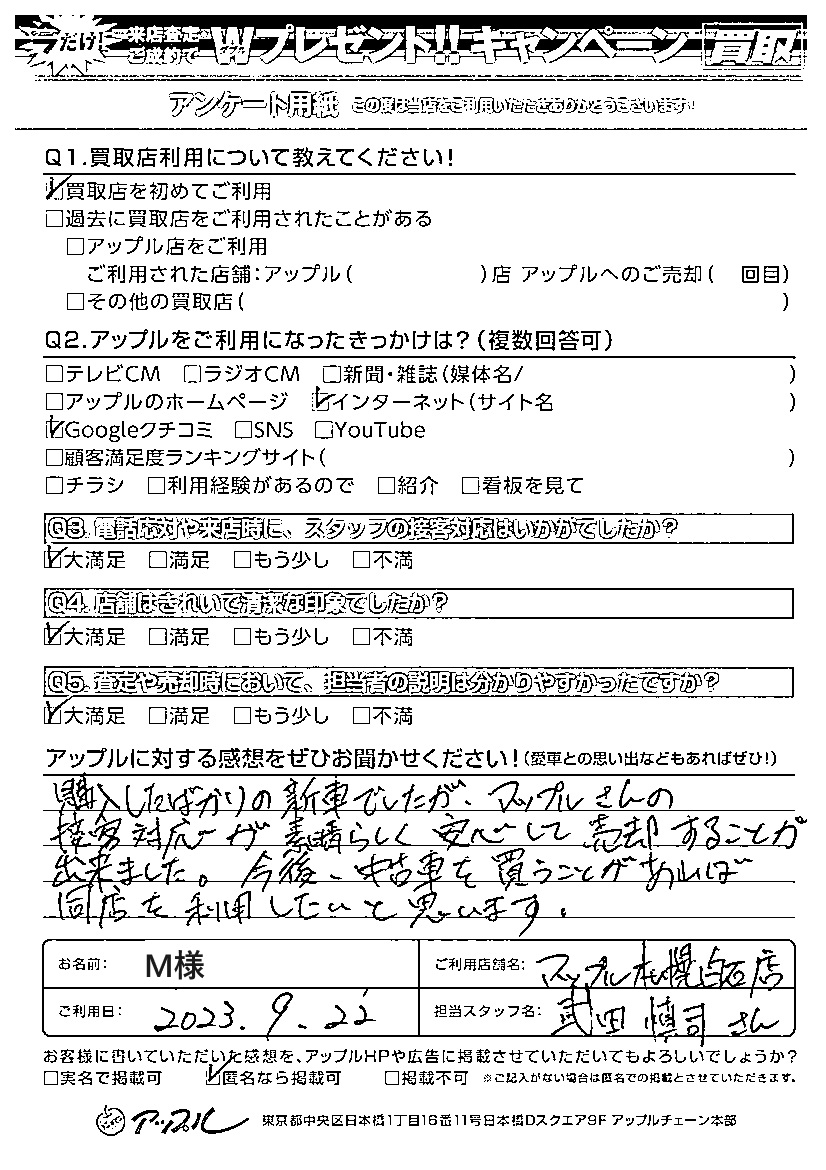 だけ! 来店査定 ご成約で Wプレゼント!! キャンペーン 買取
アンケート用紙 この度は当店をご利用いただきありがとうございます!
Q1.買取店利用について教えてください!
☑買取店を初めてご利用
□過去に買取店をご利用されたことがある
□アップル店をご利用
ご利用された店舗:アップル( )店 アップルへのご売却( 回目)
□その他の買取店( )
Q2.アップルをご利用になったきっかけは?(複数回答可)
□テレビCM □ラジオCM □新聞・雑誌(媒体名/ )
□アップルのホームページ ☑インターネット(サイト名 )
☑Googleクチコミ □SNS □YouTube
□顧客満足度ランキングサイト( )
□チラシ □利用経験があるので □紹介 □看板を見て
Q3.電話応対や来店時に、スタッフの接客対応はいかがでしたか?
☑大満足 □満足 □もう少し □不満
Q4.店舗はきれいで清潔な印象でしたか?
☑大満足 □満足 □もう少し □不満
Q5.査定や売却時において、担当者の説明は分かりやすかったですか?
☑大満足 □満足 □もう少し □不満
アップルに対する感想をぜひお聞かせください!(愛車との思い出などもあればぜひ!)
購入したばかりの新車でしたが、アップルさんの
接客対応が素晴らしく安心して売却することが
出来ました。今後、中古車を買うことがあれば
同店を利用したいと思います。
お名前: M様 ご利用店舗名: アップル札幌白石店
ご利用日: 2023.9.22 担当スタッフ名: 武田慎司さん
お客様に書いていただいた感想を、アップルHPや広告に掲載させていただいてもよろしいでしょうか?
□実名で掲載可 ☑匿名なら掲載可 □掲載不可 ※ご記入がない場合は匿名での掲載とさせていただきます。
アップル 東京都中央区日本橋1丁目16番11号日本橋Dスクエア9F アップルチェーン本部